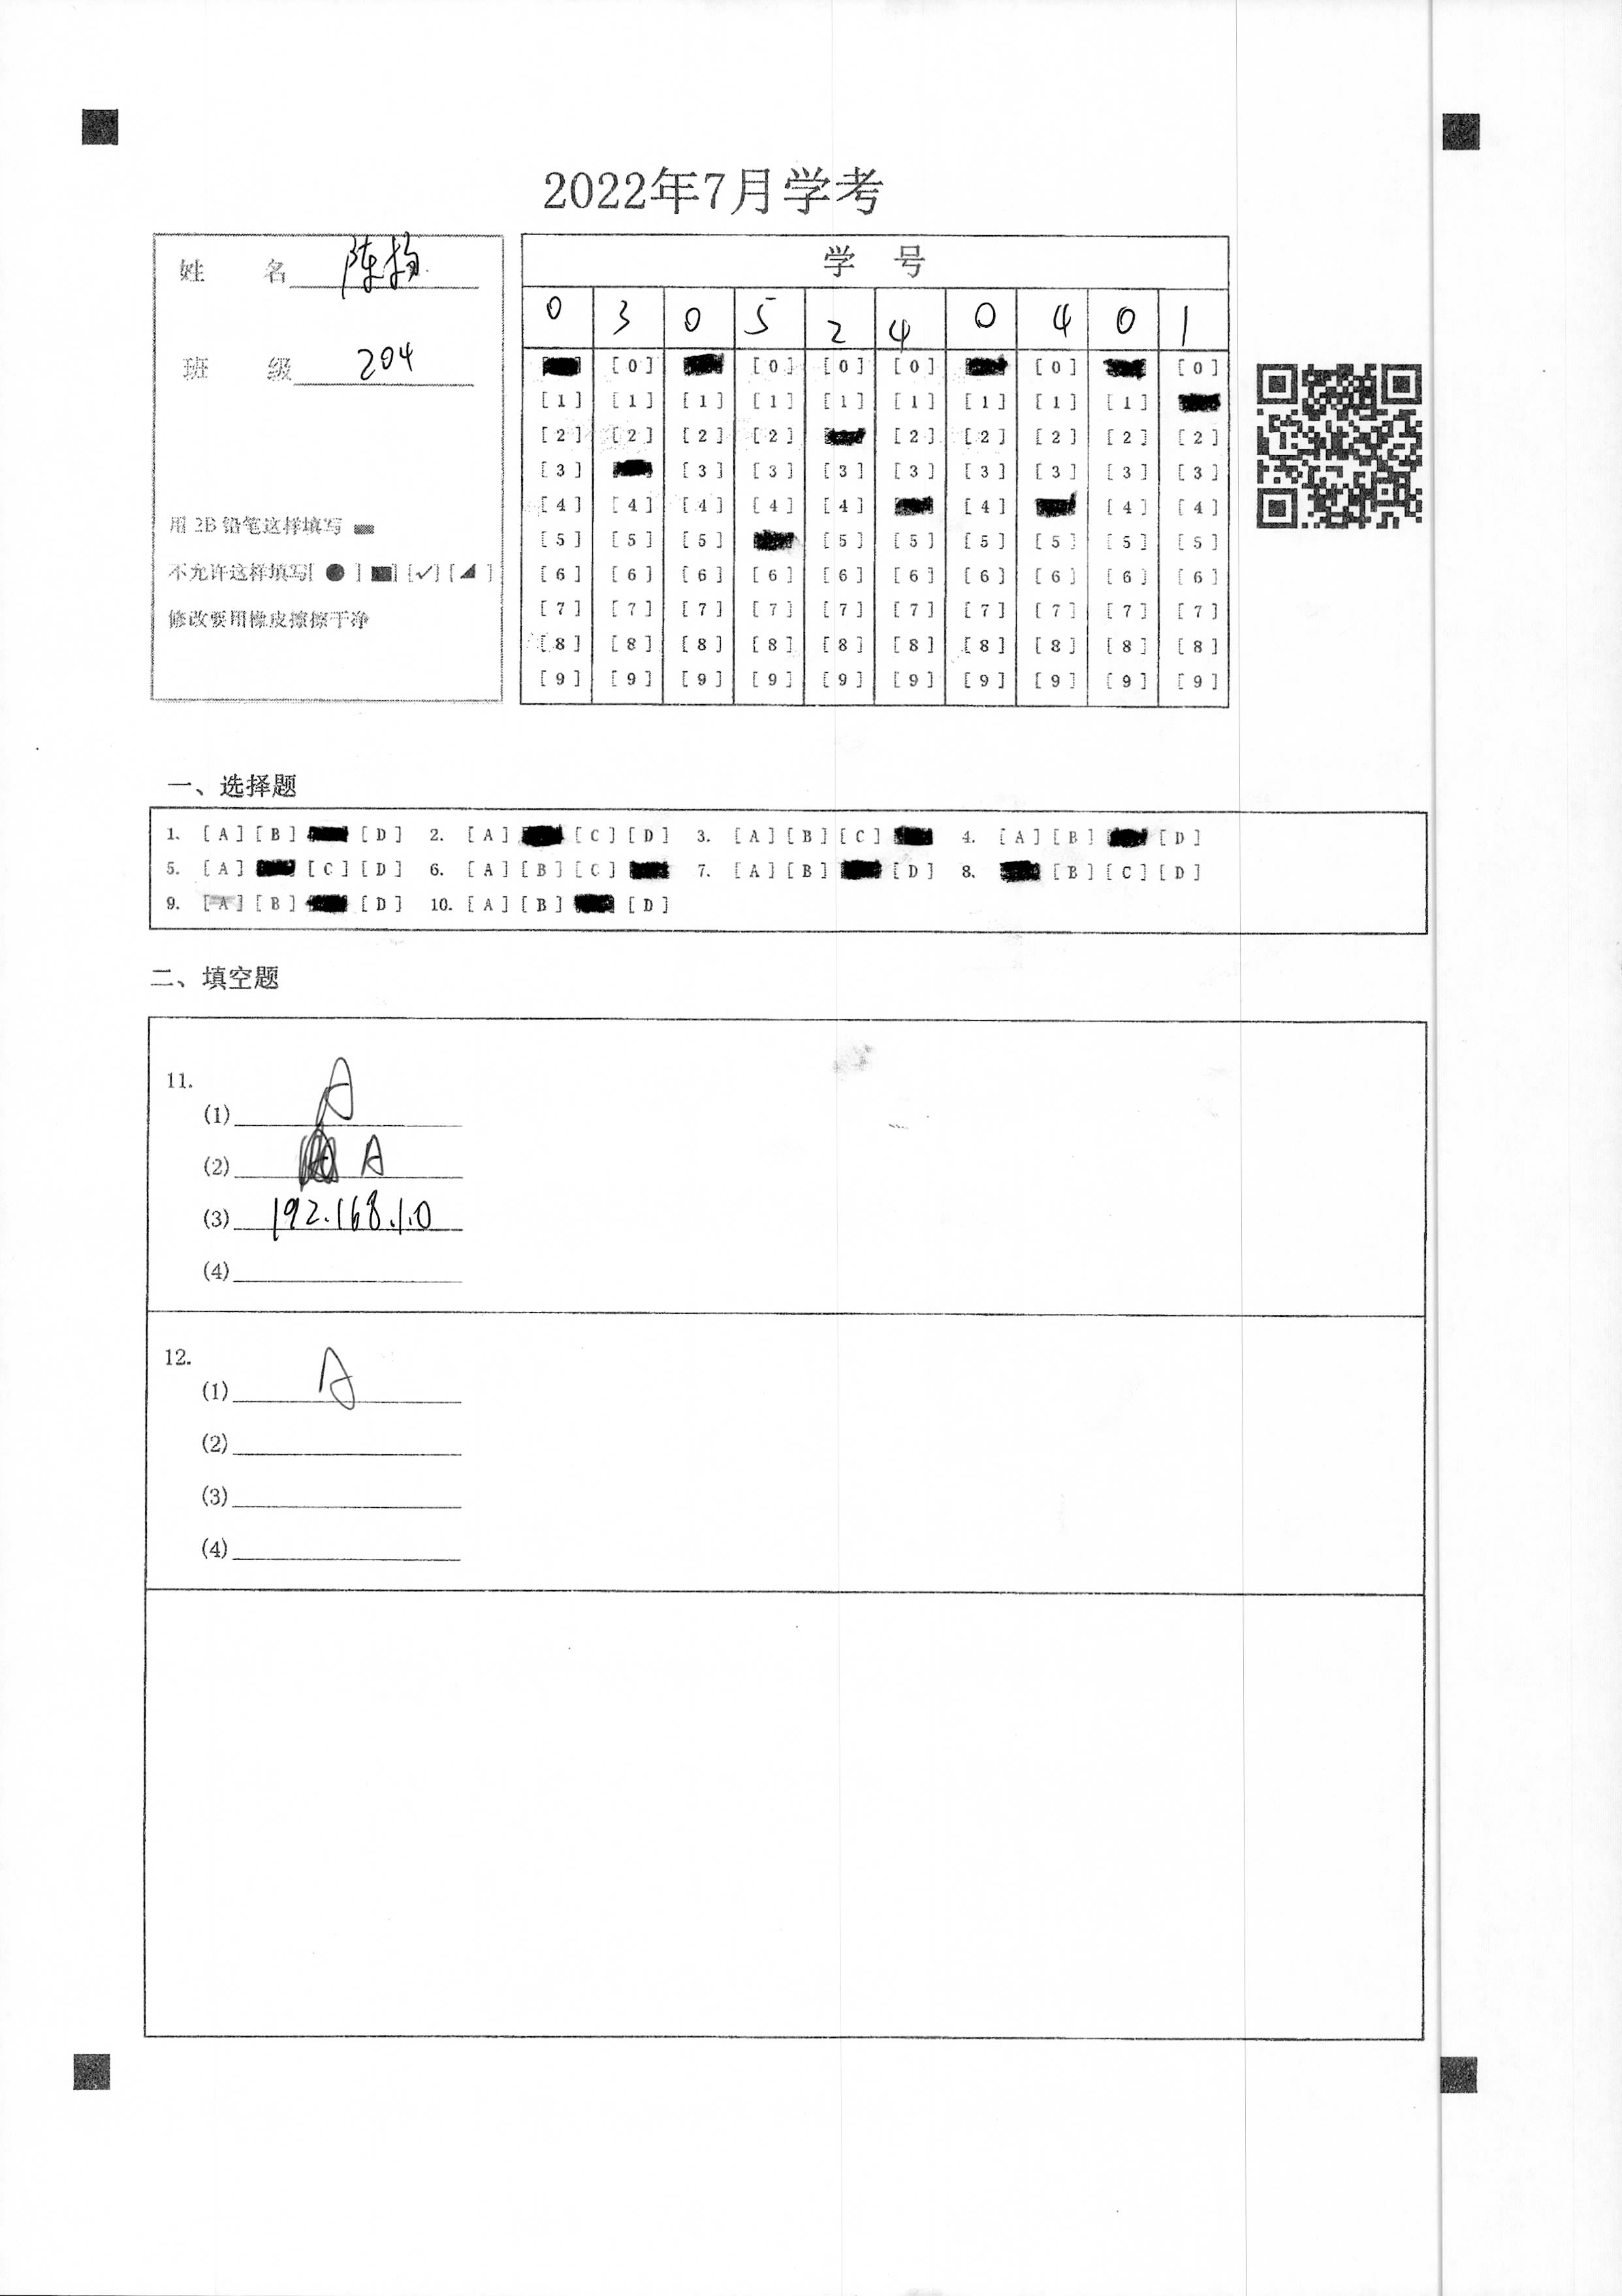 2022年7月学考
姓 名 陈扬
班 级 204
用 2B 铅笔这样填写
不允许这样填写[ ● ] [■] [✓] [◢ ]
修改要用橡皮擦擦干净
学 号
0 3 0 5 2 4 0 4 0 1
[0] [0] [0] [0] [0] [0]
[1] [1] [1] [1] [1] [1] [1] [1] [1]
[2] [2] [2] [2] [2] [2] [2] [2] [2]
[3] [3] [3] [3] [3] [3] [3] [3] [3]
[4] [4] [4] [4] [4] [4] [4] [4]
[5] [5] [5] [5] [5] [5] [5] [5] [5]
[6] [6] [6] [6] [6] [6] [6] [6] [6] [6]
[7] [7] [7] [7] [7] [7] [7] [7] [7] [7]
[8] [8] [8] [8] [8] [8] [8] [8] [8] [8]
[9] [9] [9] [9] [9] [9] [9] [9] [9] [9]
一、选择题
1. [A] [B] [D] 2. [A] [C] [D] 3. [A] [B] [C] 4. [A] [B] [D]
5. [A] [C] [D] 6. [A] [B] [C] 7. [A] [B] [D] 8. [B] [C] [D]
9. [A] [B] [D] 10. [A] [B] [D]
二、填空题
11.
(1) A
(2) A
(3) 192.168.1.0
(4)
12.
(1) A
(2)
(3)
(4)